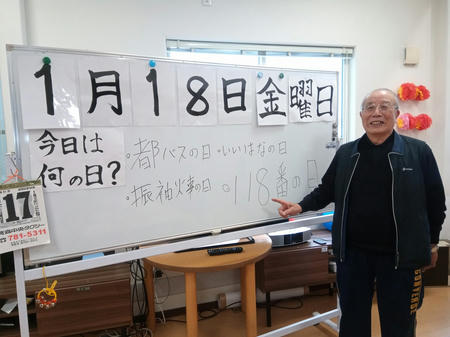 1月18日金曜日
今日は
何の日?
・都バスの日・いいはなの日
・振袖火事の日・118番の日
17
781-5311